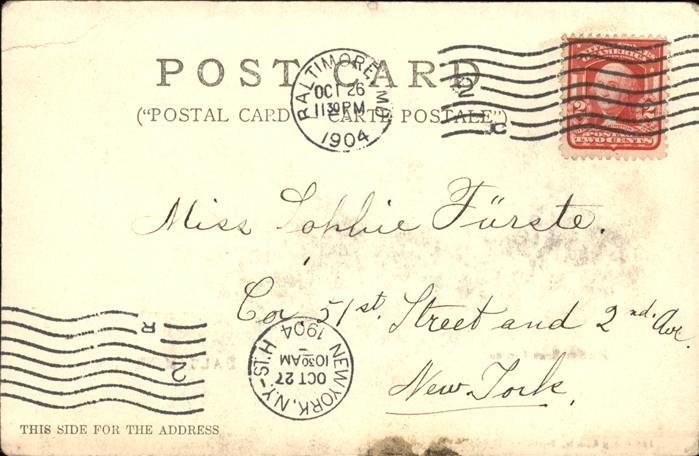 POST CARD
("POSTAL CARD — CARTE POSTALE")
BALTIMORE, MD.
OCT 26
11 30 PM
1904
2
C
2 2
TWO CENTS
Miss Sophie Fürste.
Co 51st. Street and 2nd. Ave.
New York.
R
2
NEW YORK, N.Y.-STA. H
OCT 27
10 30 AM
1904
THIS SIDE FOR THE ADDRESS